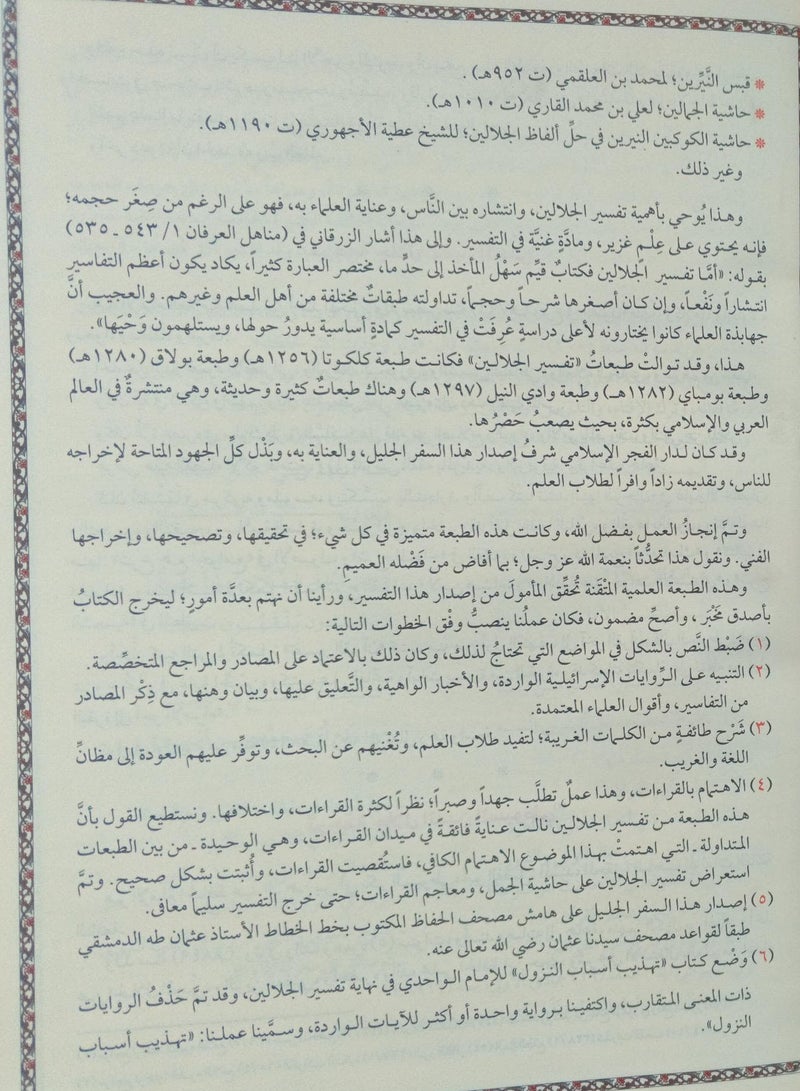 * قبس النَّيِّرين؛ لمحمد بن العلقمي (ت ٩٥٢هـ) .
* حاشية الجمالين؛ لعلي بن محمد القاري (ت ١٠١٠هـ).
* حاشية الكوكبين النيرين في حلِّ ألفاظ الجلالين؛ للشيخ عطية الأجهوري (ت ١١٩٠هـ).
وغير ذلك.
وهذا يُوحي بأهمية تفسير الجلالين، وانتشاره بين النَّاس، وعناية العلماء به، فهو على الرغم من صِغَر حجمه؛
فإنه يحتوي على عِلْمٍ غزير، ومادَّةٍ غنيَّة في التفسير. وإلى هذا أشار الزرقاني في (مناهل العرفان ١/ ٥٤٣ ـ ٥٣٥)
بقوله: «أمَّا تفسير الجلالين فكتابٌ قيِّم سَهْلُ المأخذ إلى حدٍّ ما، مختصر العبارة كثيراً، يكاد يكون أعظم التفاسير
انتشاراً ونَفْعاً، وإن كان أصغرها شرحاً وحجماً، تداولته طبقاتٌ مختلفة من أهل العلم وغيرهم. والعجيب أنَّ
جهابذة العلماء كانوا يختارونه لأعلى دراسةٍ عُرِفَتْ في التفسير كمادةٍ أساسية يدورُ حولها، ويستلهمون وَحْيَها».
هذا، وقد توالتْ طبعاتُ «تفسير الجلالين» فكانت طبعة كلكوتا (١٢٥٦هـ) وطبعة بولاق (١٢٨٠هـ)
وطبعة بومباي (١٢٨٢هـ) وطبعة وادي النيل (١٢٩٧هـ) وهناك طبعاتٌ كثيرة وحديثة، وهي منتشرةٌ في العالم
العربي والإسلامي بكثرة، بحيث يصعبُ حَصْرُها.
وقد كان لدار الفجر الإسلامي شرفُ إصدار هذا السفر الجليل، والعناية به، وبَذْل كلِّ الجهود المتاحة لإخراجه
للناس، وتقديمه زاداً وافراً لطلاب العلم.
وتمَّ إنجازُ العمل بفضل الله، وكانت هذه الطبعة متميزة في كل شيء؛ في تحقيقها، وتصحيحها، وإخراجها
الفني. ونقول هذا تحدُّثاً بنعمة الله عز وجل؛ بما أفاض من فَضْله العميم.
وهذه الطبعة العلمية المتْقَنة تُحقِّق المأمولَ من إصدار هذا التفسير، ورأينا أن نهتم بعدَّة أمورٍ؛ ليخرج الكتابُ
بأصدق مَخْبَر، وأصحِّ مضمون، فكان عملُنا ينصبُّ وفْق الخطوات التالية:
(١) ضَبْط النَّص بالشكل في المواضع التي تحتاجُ لذلك، وكان ذلك بالاعتماد على المصادر والمراجع المتخصِّصة.
(٢) التنبيه على الرِّوايات الإسرائيلية الواردة، والأخبار الواهية، والتَّعليق عليها، وبيان وهنها، مع ذِكْر المصادر
من التفاسير، وأقوال العلماء المعتمدة.
(٣) شَرْح طائفةٍ من الكلمات الغريبة؛ لتفيد طلاب العلم، وتُغْنيهم عن البحث، وتوفِّر عليهم العودة إلى مظانِّ
اللغة والغريب.
(٤) الاهتمام بالقراءات، وهذا عملٌ تطلَّب جهداً وصبراً؛ نظراً لكثرة القراءات، واختلافها. ونستطيع القول بأنَّ
هذه الطبعة من تفسير الجلالين نالت عنايةً فائقةً في ميدان القراءات، وهي الوحيدة ـ من بين الطبعات
المتداولة ـ التي اهتمتْ بهذا الموضوع الاهتمام الكافي، فاستُقصيت القراءات، وأُثبتت بشكل صحيح. وتمَّ
استعراض تفسير الجلالين على حاشية الجمل، ومعاجم القراءات؛ حتى خرج التفسير سليماً معافى.
(٥) إصدار هذا السفر الجليل على هامش مصحف الحفاظ المكتوب بخط الخطاط الأستاذ عثمان طه الدمشقي
طبقاً لقواعد مصحف سيدنا عثمان رضي الله تعالى عنه.
(٦) وَضْع كتاب «تهذيب أسباب النزول» للإمام الواحدي في نهاية تفسير الجلالين، وقد تمَّ حَذْفُ الروايات
ذات المعنى المتقارب، واكتفينا برواية واحدة أو أكثر للآيات الواردة، وسمَّينا عملنا: «تهذيب أسباب
النزول».